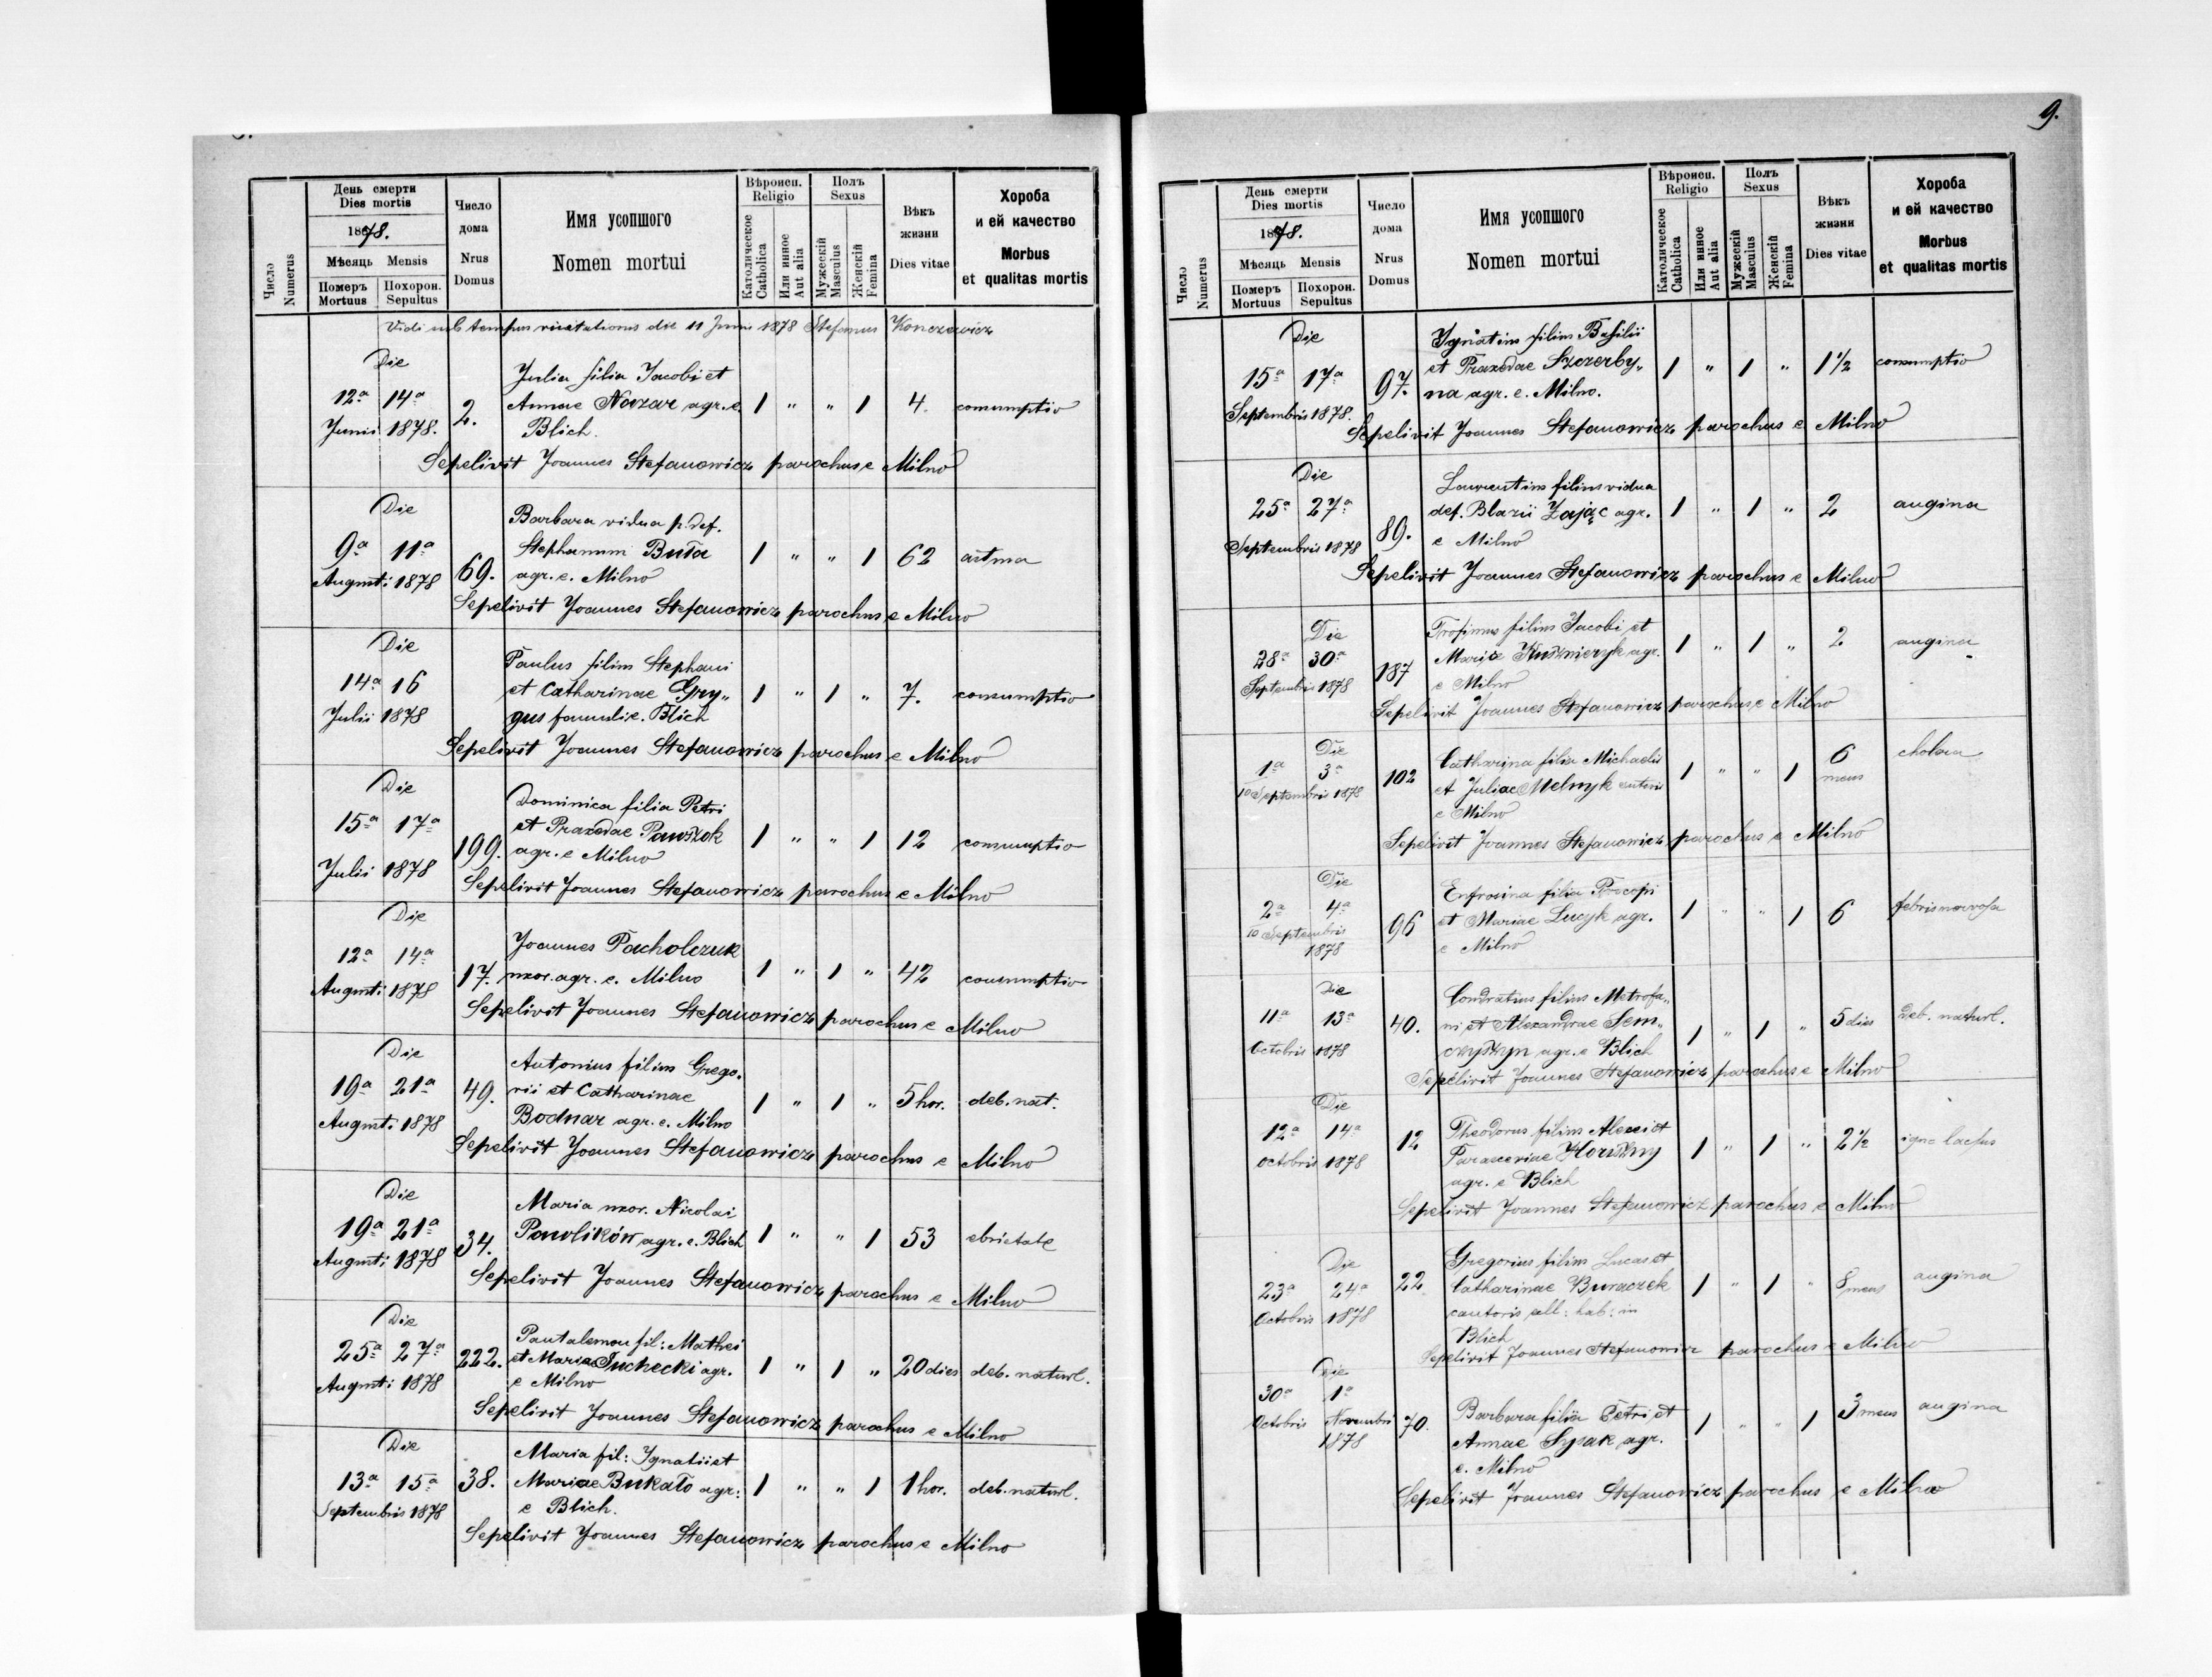 Число Numerus
День смерти
Dies mortis
1878.
Мѣсяць Mensis
Померъ Mortuus
Похорон. Sepultus
Число дома
Nrus Domus
Имя усопшого
Nomen mortui
Вѣроисп.
Religio
Католическое Catholica
Или инное Aut alia
Полъ
Sexus
Мужескій Masculus
Женскій Femina
Вѣкъ жизни
Dies vitae
Хороба
и ей качество
Morbus
et qualitas mortis
Vidi sub tempus visitationis die 11 Junii 1878 Stefanus
Die
Julia filia Jacobi et
12a 14a 2. Annae Nazar agr. e. 1 " " 1 4. consumptio
Junii 1878. Blich.
Sepelivit Joannes Stefanowicz parochus e Milno
Die
Barbara vidua p. def.
9a 11a Stephanum Buta 1 " " 1 62 astma
Augusti 1878 69. agr. e. Milno
Sepelivit Joannes Stefanowicz parochus e Milno
Die
Paulus filius Stephani
14a 16 et Catharinae Gry„ 1 " 1 " 7. consumptio
Julii 1878 gus famuli e. Blich
Sepelivit Joannes Stefanowicz parochus e Milno
Die
Dominica filia Petri
15a 17a et Praxedae Pawszok 1 " " 1 12 consumptio
Julii 1878 199. agr. e Milno
Sepelivit Joannes Stefanowicz parochus e Milno
Die
Joannes Pacholczuk
12a 14a 17. uxor. agr. e. Milno 1 " 1 " 42 consumptio
Augusti 1878
Sepelivit Joannes Stefanowicz parochus e Milno
Die
Antonius filius Grego.
19a 21a 49. rii et Catharinae 1 " 1 " 5 hor. deb. nat.
Augusti 1878 Bodnar agr. e. Milno
Sepelivit Joannes Stefanowicz parochus e Milno
Die
Maria uxor. Nicolai
19a 21a 34. Pawlików agr. e. Blich 1 " " 1 53 ebrietate
Augusti 1878
Sepelivit Joannes Stefanowicz parochus e Milno
Die
Pantalemon fil: Mathei
25a 27a 222. et Mariae Tuchecki agr. 1 " 1 " 20 dies deb. naturl.
Augusti 1878 e Milno
Sepelivit Joannes Stefanowicz parochus e Milno
Die
Maria fil: Ignatii et
13a 15a 38. Mariae Bukato agr: 1 " " 1 1 hor. deb. naturl.
Septembris 1878 e Blich.
Sepelivit Joannes Stefanowicz parochus e Milno
9.
Число Numerus
День смерти
Dies mortis
1878.
Мѣсяць Mensis
Померъ Mortuus
Похорон. Sepultus
Число дома
Nrus Domus
Имя усопшого
Nomen mortui
Вѣроисп.
Religio
Католическое Catholica
Или инное Aut alia
Полъ
Sexus
Мужескій Masculus
Женскій Femina
Вѣкъ жизни
Dies vitae
Хороба
и ей качество
Morbus
et qualitas mortis
Die
Ignatius filius Basilii
15a 17a 97. et Praxedae Szczerby„ 1 " 1 " 1 1/2 consumptio
Septembris 1878. na agr. e. Milno.
Sepelivit Joannes Stefanowicz parochus e Milno
Die
Laurentius filius vidua
25a 27a 89. def. Blazii Zając agr. 1 " 1 " 2 angina
Septembris 1878 e Milno
Sepelivit Joannes Stefanowicz parochus e Milno
Die
Trofimus filius Jacobi et
28a 30a 187 Mariae Kuszniryk agr. 1 " 1 " 2 angina
Septembris 1878 e Milno
Sepelivit Joannes Stefanowicz parochus e Milno
Die
Catharina filia Michaelis
1a 3a 102 et Juliae Melnyk 1 " " 1 6 mens
10 Septembris 1878 e Milno
Sepelivit Joannes Stefanowicz parochus e Milno
Die
Eufrosina filia Procopi
2a 4a 96 et Mariae Lucyk agr. 1 " " 1 6 febris norvosa
10 Septembris 1878 e Milno
Die
Condratius filius Metrofa„
11a 13a 40. ni et Alexandrae Sem„ 1 " 1 " 5 dies deb. naturl.
Octobris 1878 agr. e Blich
Sepelivit Joannes Stefanowicz parochus e Milno
Die
Theodorus filius Alexi et
12a 14a 12 Parasceviae 1 " 1 " 2 1/2
octobris 1878 agr. e Blich
Sepelivit Joannes Stefanowicz parochus e Milno
Die
Gregorius filius Lucas et
23a 24a 22. Catharinae Buraczek 1 " 1 " 8 mens angina
Octobris 1878 cantoris hab: in
Blich
Sepelivit Joannes Stefanowicz parochus e Milno
Die
30a 1a Barbara filia Petri et 1 " " 1 3 mens angina
Octobris Novembri 1878 70. Annae Sysak agr.
e. Milno
Sepelivit Joannes Stefanowicz parochus e Milno